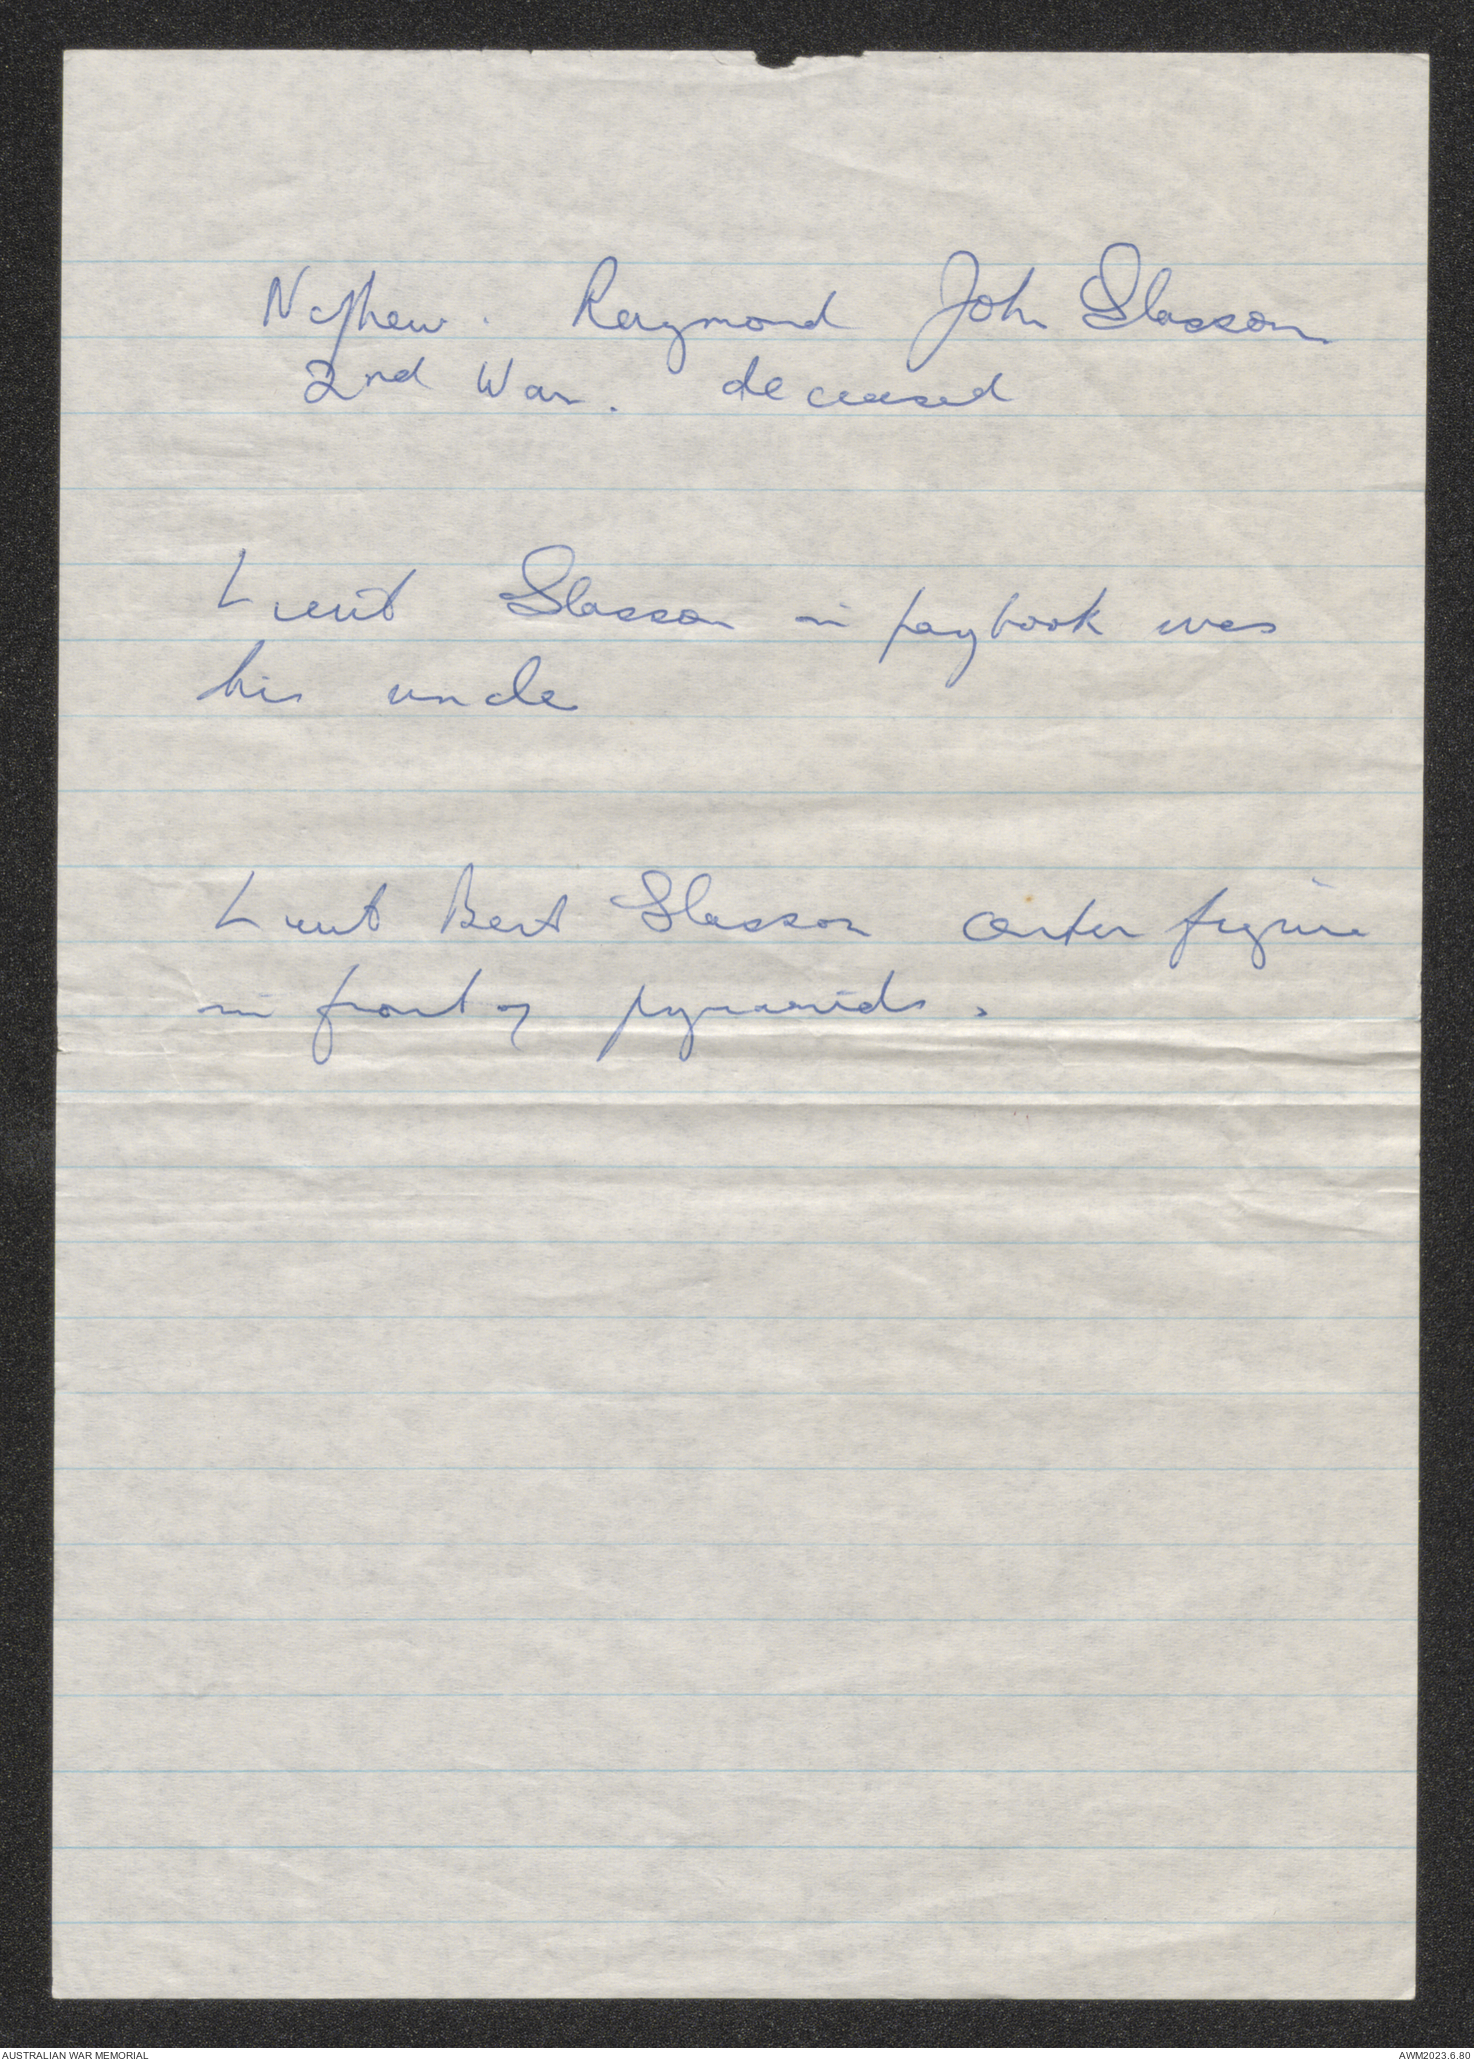 Nephew. Raymond John Glasson
2nd War. deceased
Lieut Glasson in paybook was
his uncle
Lieut Bert Glasson center figure
in front of pyramids.
AUSTRALIAN WAR MEMORIAL
AWM2023.6.80